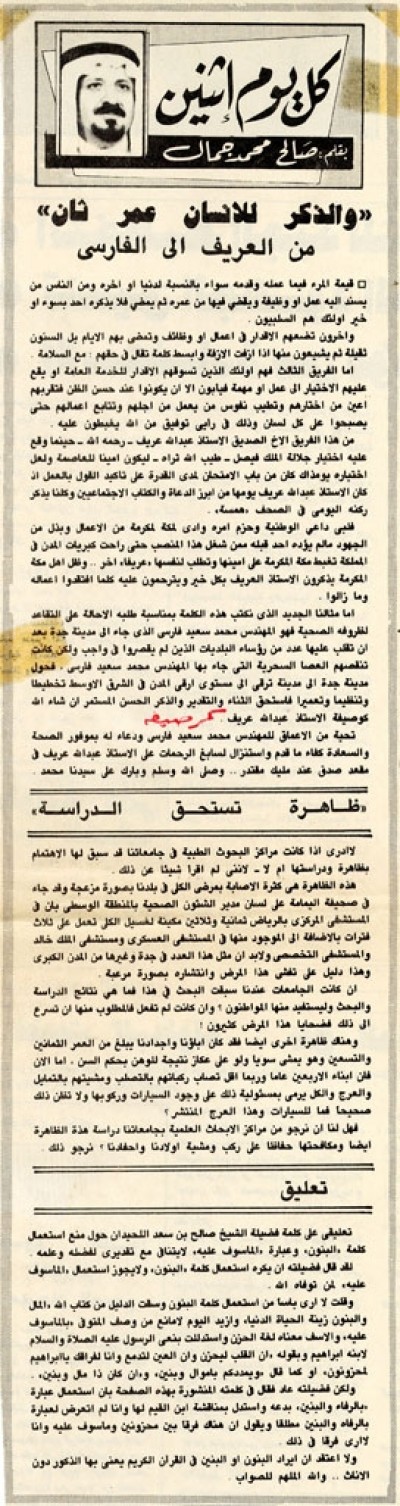 كل يوم إثنين
بقلم: صالح محمد جمال
«والذكر للانسان عمر ثان»
من العريف الى الفارسى
□ قيمة المرء فيما عمله وقدمه سواء بالنسبة لدنيا او اخره ومن الناس من
يسند اليه عمل او وظيفة ويقضي فيها من عمره ثم يمضي فلا يذكره احد بسوء او
خير اولئك هم السلبيون.
واخرون تضعهم الاقدار في اعمال او وظائف وتمضى بهم الايام بل السنون
ثقيلة ثم يشيعون منها اذا ازفت الازفة وابسط كلمة تقال في حقهم: مع السلامة.
اما الفريق الثالث فهم اولئك الذين تسوقهم الاقدار للخدمة العامة او يقع
عليهم الاختيار الى عمل او مهمة فيابون الا ان يكونوا عند حسن الظن فتقربهم
اعين من اختارهم وتطيب نفوس من يعمل من اجلهم وتتابع اعمالهم حتى
يصبحوا على كل لسان وذلك في رايى توفيق من الله يغبطون عليه.
من هذا الفريق الاخ الصديق الاستاذ عبدالله عريف ـ رحمه الله ـ حينما وقع
عليه اختيار جلالة الملك فيصل ـ طيب الله ثراه ـ ليكون امينا للعاصمة ولعل
اختياره يومذاك كان من باب الامتحان لمدى القدرة على تأكيد القول بالعمل اذ
كان الاستاذ عبدالله عريف يومها من ابرز الدعاة والكتاب الاجتماعيين وكلنا يذكر
ركنه اليومى في الصحف «همسة».
فلبى داعى الوطنية وحزم امره وادى لمكة المكرمة من الاعمال وبذل من
الجهود مالم يؤده احد قبله ممن شغل هذا المنصب حتى راحت كبريات المدن في
المملكة تغبط مكة المكرمة على امينها وتطلب لنفسها «عريفا» اخر .. وظل اهل مكة
المكرمة يذكرون الاستاذ العريف بكل خير ويترحمون عليه كلما افتقدوا اعماله
وما زالوا.
اما مثالنا الجديد الذى نكتب هذه الكلمة بمناسبة طلبه الاحالة على التقاعد
لظروفه الصحية فهو المهندس محمد سعيد فارسى الذى جاء الى مدينة جدة بعد
ان تقلب عليها عدد من رؤساء البلديات الذين لم يقصروا في واجب ولكن كانت
تنقصهم العصا السحرية التي جاء بها المهندس محمد سعيد فارسى، فحول
مدينة جدة الى مدينة ترقى الى مستوى ارقى المدن في الشرق الاوسط تخطيطا
وتنظيما وتعميرا فاستحق الثناء والتقدير والذكر الحسن المستمر ان شاء الله
كوصيفة الاستاذ عبدالله عريف.
تحية من الاعماق للمهندس محمد سعيد فارسى ودعاء له بموفور الصحة
والسعادة كفاء ما قدم واستنزال لسابغ الرحمات على الاستاذ عبدالله عريف في
مقعد صدق عند مليك مقتدر .. وصلى الله وسلم وبارك على سيدنا محمد.
«ظاهرة تستحق الدراسة»
لاادرى اذا كانت مراكز البحوث الطبية في جامعاتنا قد سبق لها الاهتمام
بظاهرة ودراستها ام لا ـ لاننى لم اقرا شيئا عن ذلك.
هذه الظاهرة هى كثرة الاصابة بمرضى الكلى في بلدنا بصورة مزعجة وقد جاء
في صحيفة اليمامة على لسان مدير الشئون الصحية بالمنطقة الوسطى بان في
المستشفى المركزى بالرياض ثمانية وثلاثين مكينة لغسيل الكلى تعمل على ثلاث
فترات بالاضافة الى الموجود منها في المستشفى العسكرى ومستشفى الملك خالد
والمستشفى التخصصى ولابد ان مثل هذا العدد في جدة وغيرها من المدن الكبرى
وهذا دليل على تفشى هذا المرض وانتشاره بصورة مرعبة.
ان كانت الجامعات عندنا سبقت البحث في هذا فما هي نتائج الدراسة
والبحث وليستفيد منها المواطنون؟ وان كانت لم تفعل فالمطلوب منها ان تسرع
الى ذلك فضحايا هذا المرض كثيرون!
وهناك ظاهرة أخرى ايضا فقد كان اباؤنا واجدادنا يبلغ من العمر الثمانين
والتسعين وهو يمشى سويا ولو على عكاز نتيجة للوهن بحكم السن. اما الان
فان ابناء الاربعين عاما وربما اقل تصاب ركباتهم بالتصلب ومشيتهم بالتمايل
والعرج والكل يرمى بمسئولية ذلك على وجود السيارات وركوبها ولا نظن ذلك
صحيحا فما للسيارات وهذا العرج المنتشر؟
فهل لنا ان نرجو من مراكز الابحاث العلمية بجامعاتنا دراسة هذة الظاهرة
ايضا ومكافحتها حفاظا على ركب ومشية اولادنا واحفادنا؟ نرجو ذلك.
تعليق
تعليقى على كلمة فضيلة الشيخ صالح بن سعد اللحيدان حول منع استعمال
كلمة «البنون» وعبارة «الماسوف عليه» لايتنافى مع تقديرى لفضله وعلمه.
لقد قال فضيلته ان يكره استعمال كلمة «البنون» ولايجوز استعمال «الماسوف
عليه» لمن توفاه الله.
وقلت لا ارى باسا من استعمال كلمة البنون وسقت الدليل من كتاب الله «المال
والبنون زينة الحياة الدنيا» وازيد اليوم لامانع من وصف المتوفى «بالماسوف
عليه» والاسف معناه لغة الحزن واستدللت بنعى الرسول عليه الصلاة والسلام
لابنه ابراهيم وبقوله «ان القلب ليحزن وان العين لتدمع وانا لفراقك ياابراهيم
لمحزونون» او كما قال «ويمددكم باموال وبنين» و«ان كان ذا مال وبنين».
ولكن فضيلته عاد فقال في كلمته المنشورة بهذه الصفحة بان استعمال عبارة
«بالرفاه والبنين» بدعه واستدل بمناقشة ابن القيم لها وانا لم اتعرض لعبارة
بالرفاه والبنين مطلقا ويقول ان هناك فرقا بين محزونين وماسوف عليه وانا
لاارى فرقا في ذلك.
ولا اعتقد ان ايراد البنون او البنين في القران الكريم يعنى بها الذكور دون
الاناث .. والله الملهم للصواب.